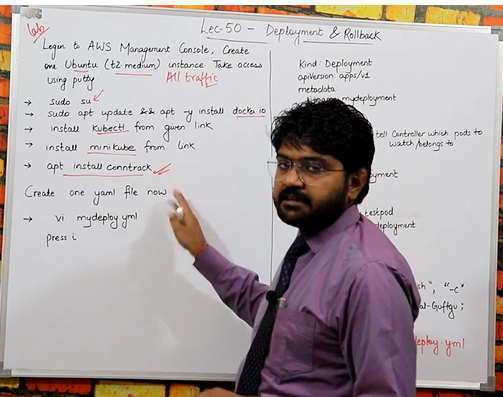 Lab
Lec-50 - Deployment & Rollback
Login to AWS Management Console, Create
one Ubuntu (t2.medium) instance Take access
using putty. All traffic
→ sudo su
→ sudo apt update && apt -y install docker.io
→ install kubectl from given link
→ install minikube from link
→ apt install conntrack
Create one yaml file now
→ vi mydeploy.yml
press i
Kind: Deployment
apiVersion: apps/v1
metadata:
mydeployment
tell Controller which pods to
watch/belongs to
yment
testpod
yment
sh", "-c"
al-Guftgu;
deploy.yml